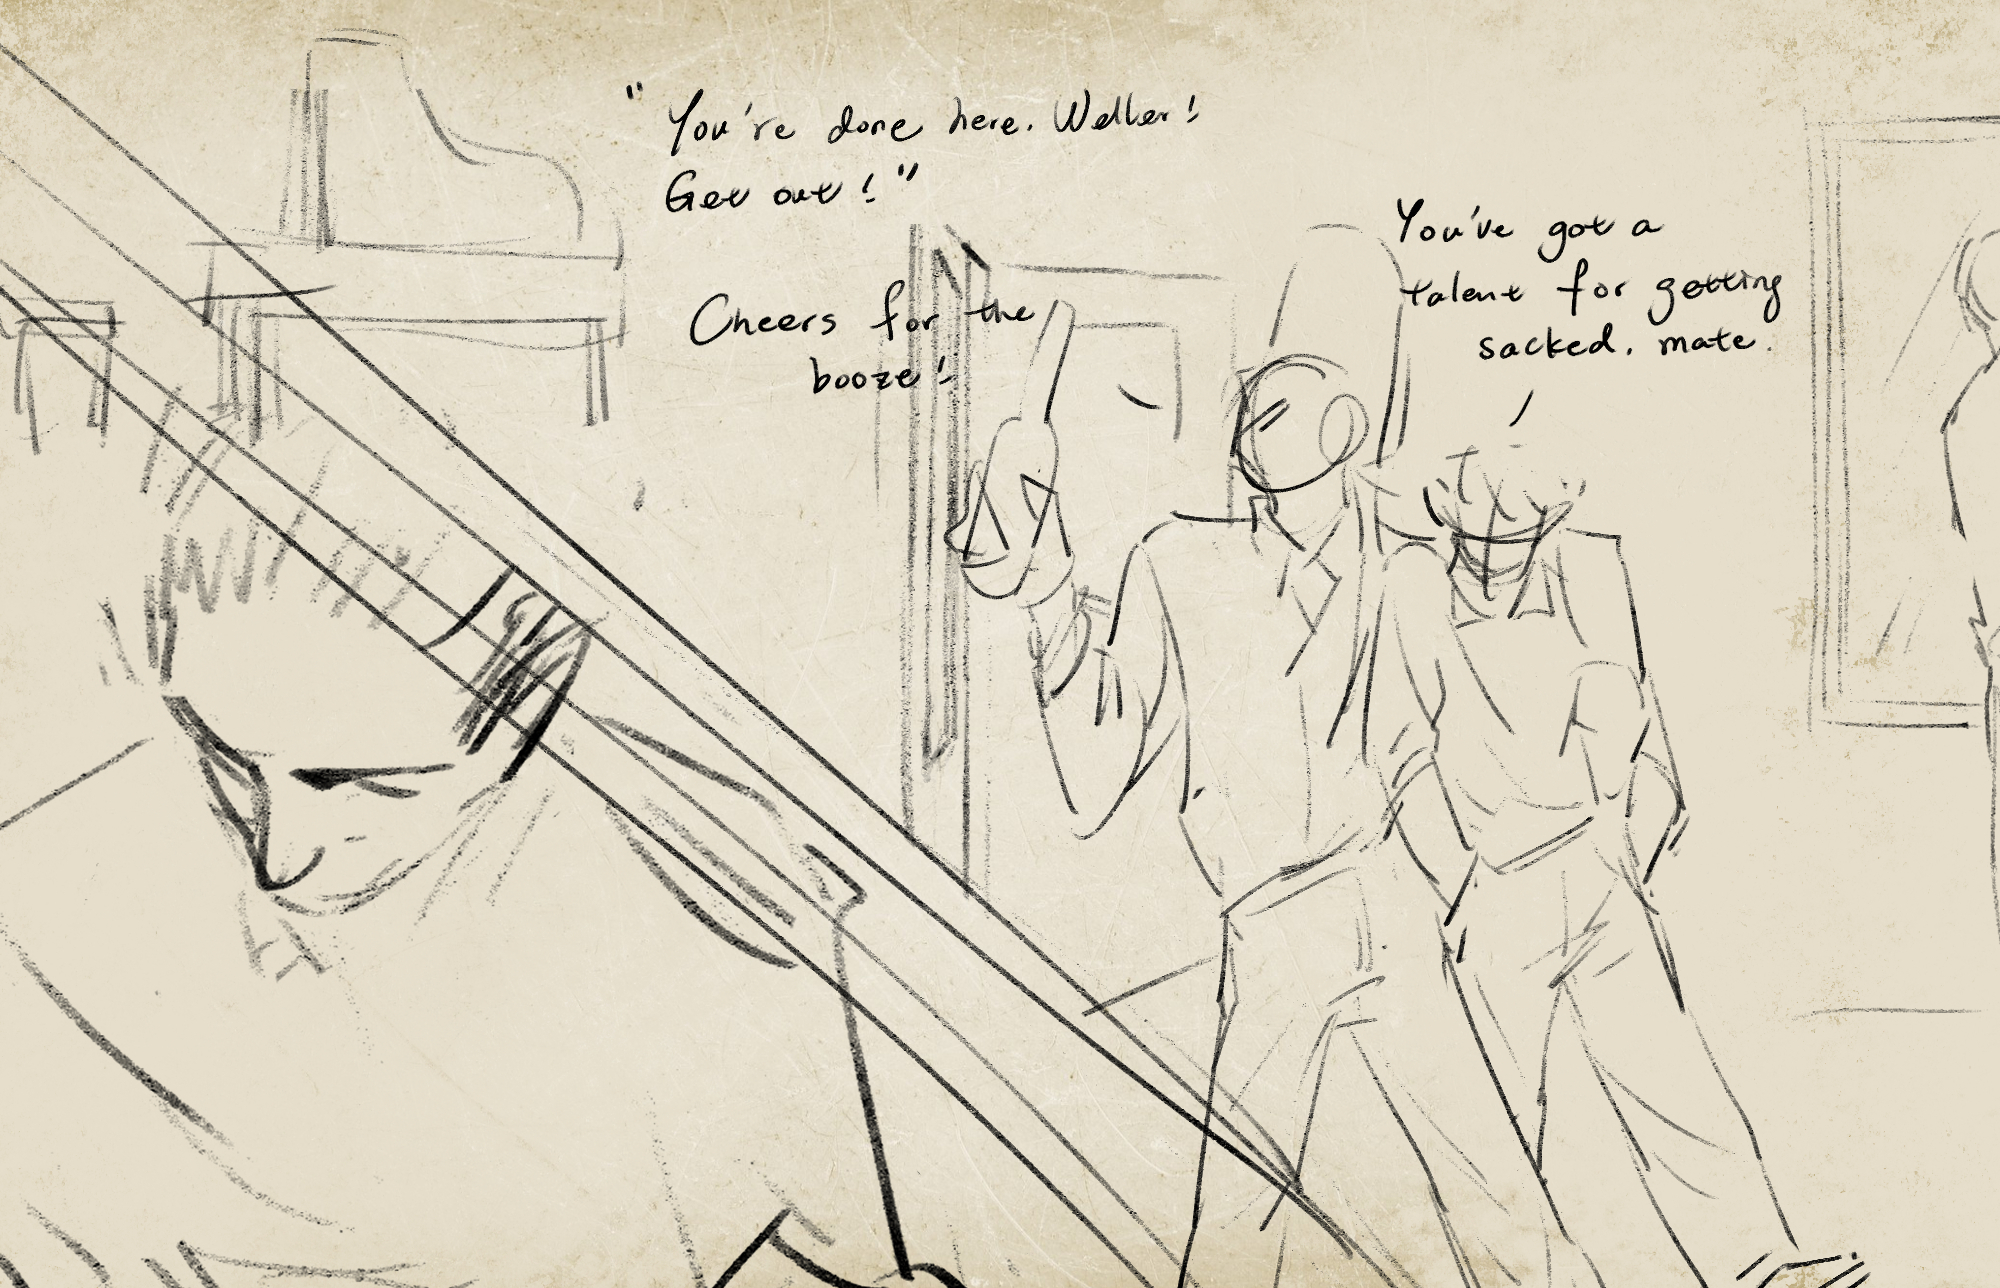 "You're done here. Weller!
Get out!"
Cheers for the
booze!
You've got a
talent for getting
sacked. mate.